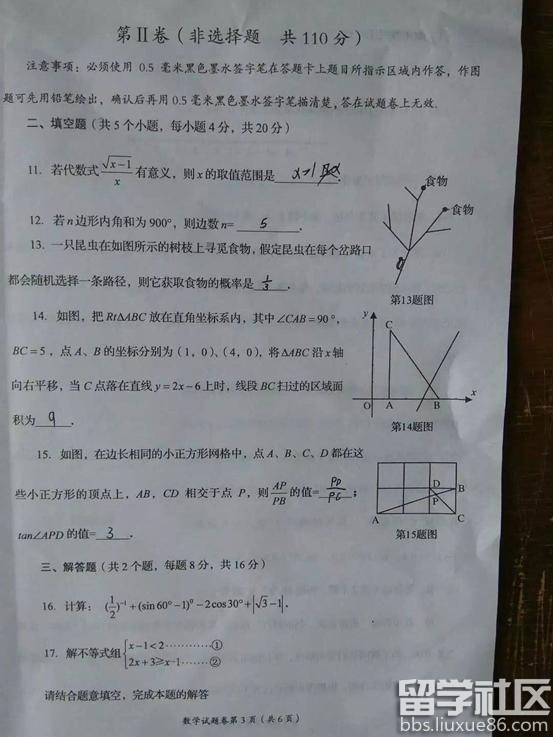 第Ⅱ卷（非选择题 共110分）
注意事项：必须使用 0.5 毫米黑色墨水签字笔在答题卡上题目所指示区域内作答，作图
题可先用铅笔绘出，确认后再用 0.5 毫米黑色墨水签字笔描清楚，答在试题卷上无效．
二、填空题（共5个小题，每小题4分，共20分）
11. 若代数式 √(x−1)/x 有意义，则 x 的取值范围是 x≥1 ．
12. 若 n 边形内角和为 900°，则边数 n= 5 ．
13. 一只昆虫在如图所示的树枝上寻觅食物，假定昆虫在每个岔路口
都会随机选择一条路径，则它获取食物的概率是 1/3 ．
食物
食物
第13题图
14. 如图，把 Rt△ABC 放在直角坐标系内，其中∠CAB=90°，
BC=5，点 A、B 的坐标分别为（1，0）、（4，0），将△ABC 沿 x 轴
向右平移，当 C 点落在直线 y=2x−6 上时，线段 BC 扫过的区域面
积为 9 ．
y
C
O A B x
第14题图
15. 如图，在边长相同的小正方形网格中，点 A、B、C、D 都在这
些小正方形的顶点上，AB，CD 相交于点 P，则 AP/PB 的值= PD/PC ；
tan∠APD 的值= 3 ．
D B
P
A C
第15题图
三、解答题（共2个题，每题8分，共16分）
16. 计算：(1/2)⁻¹+(sin60°−1)⁰−2cos30°+|√3−1|．
17. 解不等式组{x−1<2 ············①
2x+3≥x−1 ········②
请结合题意填空，完成本题的解答
数学试题卷第3页（共6页）
留学社区
bbs.liuxue86.com